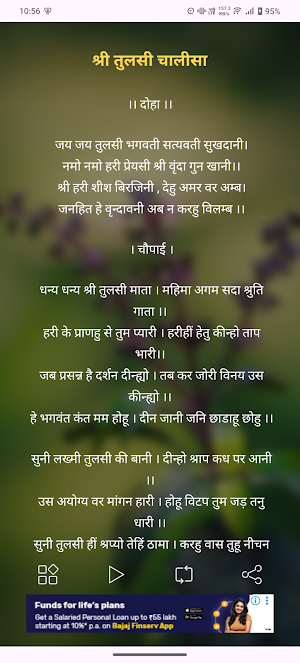 10:56
157.2
KB/s
95%
श्री तुलसी चालीसा
।। दोहा ।।
जय जय तुलसी भगवती सत्यवती सुखदानी।
नमो नमो हरी प्रेयसी श्री वृंदा गुन खानी।।
श्री हरी शीश बिरजिनी , देहु अमर वर अम्ब।
जनहित हे वृन्दावनी अब न करहु विलम्ब ।।
। चौपाई ।
धन्य धन्य श्री तुलसी माता । महिमा अगम सदा श्रुति
गाता ।।
हरी के प्राणहु से तुम प्यारी । हरीहीं हेतु कीन्हो ताप
भारी।।
जब प्रसन्न है दर्शन दीन्ह्यो । तब कर जोरी विनय उस
कीन्ह्यो ।।
हे भगवंत कंत मम होहू । दीन जानी जनि छाडाहू छोहु ।।
सुनी लख्मी तुलसी की बानी । दीन्हो श्राप कध पर आनी
।।
उस अयोग्य वर मांगन हारी । होहू विटप तुम जड़ तनु
धारी ।।
सुनी तुलसी हीं श्रप्यो तेहिं ठामा । करहु वास तुहू नीचन
Funds for life's plans
Get a Salaried Personal Loan up to ₹55 lakh
starting at 10%* p.a. on Bajaj Finserv App